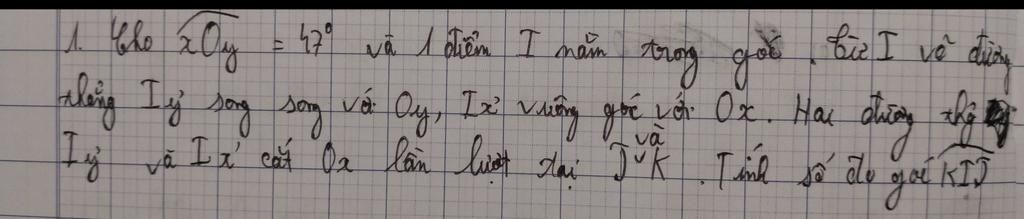 1. Cho xOy = 47° và 1 điểm I nằm trong góc. Từ I vẽ đường
thẳng Iy' song song với Oy, Ix' vuông góc với Ox. Hai đường thg
Iy' và Ix' cắt Ox lần lượt tại J và K. Tính số đo góc KIJ